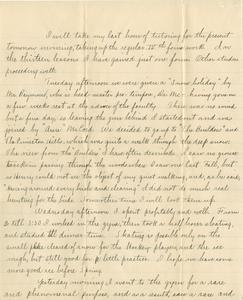 I will take my last hour of tutoring for the present
tomorrow morning, taking up the regular IVth form work. In
the thirteen lessons I have gained just one form. Other studies
proceeding well.
Tuesday afternoon we were given a "snow holiday" by
Mr. Raymond, who is head master pro. tempore, the Mr. having gone on
a few weeks rest at the advice of the faculty. This was no sooner
but a fine day, so leaving the gym behind I started out and was
joined by Mr. McCord. We decided to go to "the Builders" and
the extension hills, which was quite a walk through the deep snow.
the view from the Builders I have often described. I saw no grouse
tracks in passing through the woods where I was last Fall, but
as Henry could not see the object of my quiet walking, and, as he said,
"nosing around every bush and clearing" I did not do much real
hunting for the birds. Some other time I will look them up.
Wednesday afternoon I spent profitably and well. From
2 till 3:30 I worked in the gym, then took a half hour skating,
and studied the dinner time. Skating is possible only on the
small place cleared of snow for the Hockey players, and the ice
rough, but still good for a little practice. I hope to have some
more good ice before Spring.
Yesterday morning I went to the gym for a rare
and phenomenal purpose, and as a result saw a rare and